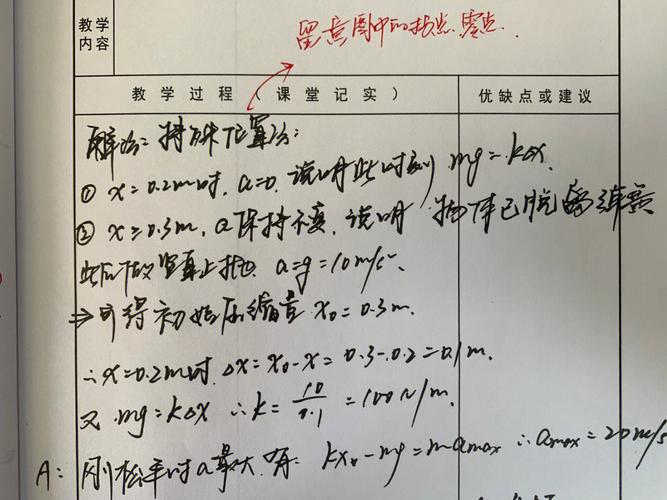 教学
内容
留意图中的拐点、零点.
教学过程（课堂记实）
优缺点或建议
解法二 特殊位置法:
① x=0.2m时, a=0, 说明此时刻 mg=kΔx.
② x≥0.3m, a保持不变, 说明 物体已脱离弹簧
此后做竖直上抛, a=g=10m/s².
⇒可得初始压缩量 x₀=0.3m.
∴x=0.2m时, Δx=x₀-x=0.3-0.2=0.1m.
又 mg=kΔx ∴k=10/0.1=100N/m.
A: 刚松手时a最大, 有: kx₀-mg=mamax ∴amax=20m/s